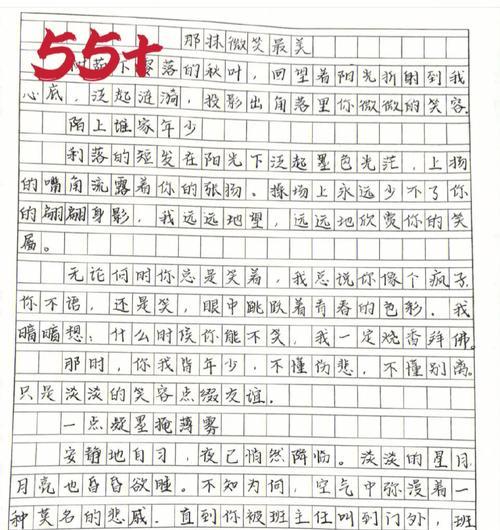 那抹微笑最美
55+
落的秋叶，回望着阳光折射到我
心底，泛起涟漪，投影出角落里你微微的笑容.
陌上谁家年少
利落的短发在阳光下泛起墨色光茫，上扬
的嘴角流露着你的张扬。操场上永远少不了你
的翩翩身影，我远远地望，远远地欣赏你的笑
属。
无论何时你总是笑着，我总说你像个疯子.
你不语，还是笑，眼中跳跃着青春的色彩.我
暗暗想：什么时候你能不笑，我一定烧香拜佛。
那时，你我皆年少，不懂伤悲，不懂别离.
只是淡淡的笑容点缀友谊.
一点凝墨掩薄雾
安静地自习，夜已悄然降临。淡淡的星月
月亮也昏昏欲睡。不知为何，空气中弥漫着一
种莫名的悲戚.直到你被班主任叫到门外，班